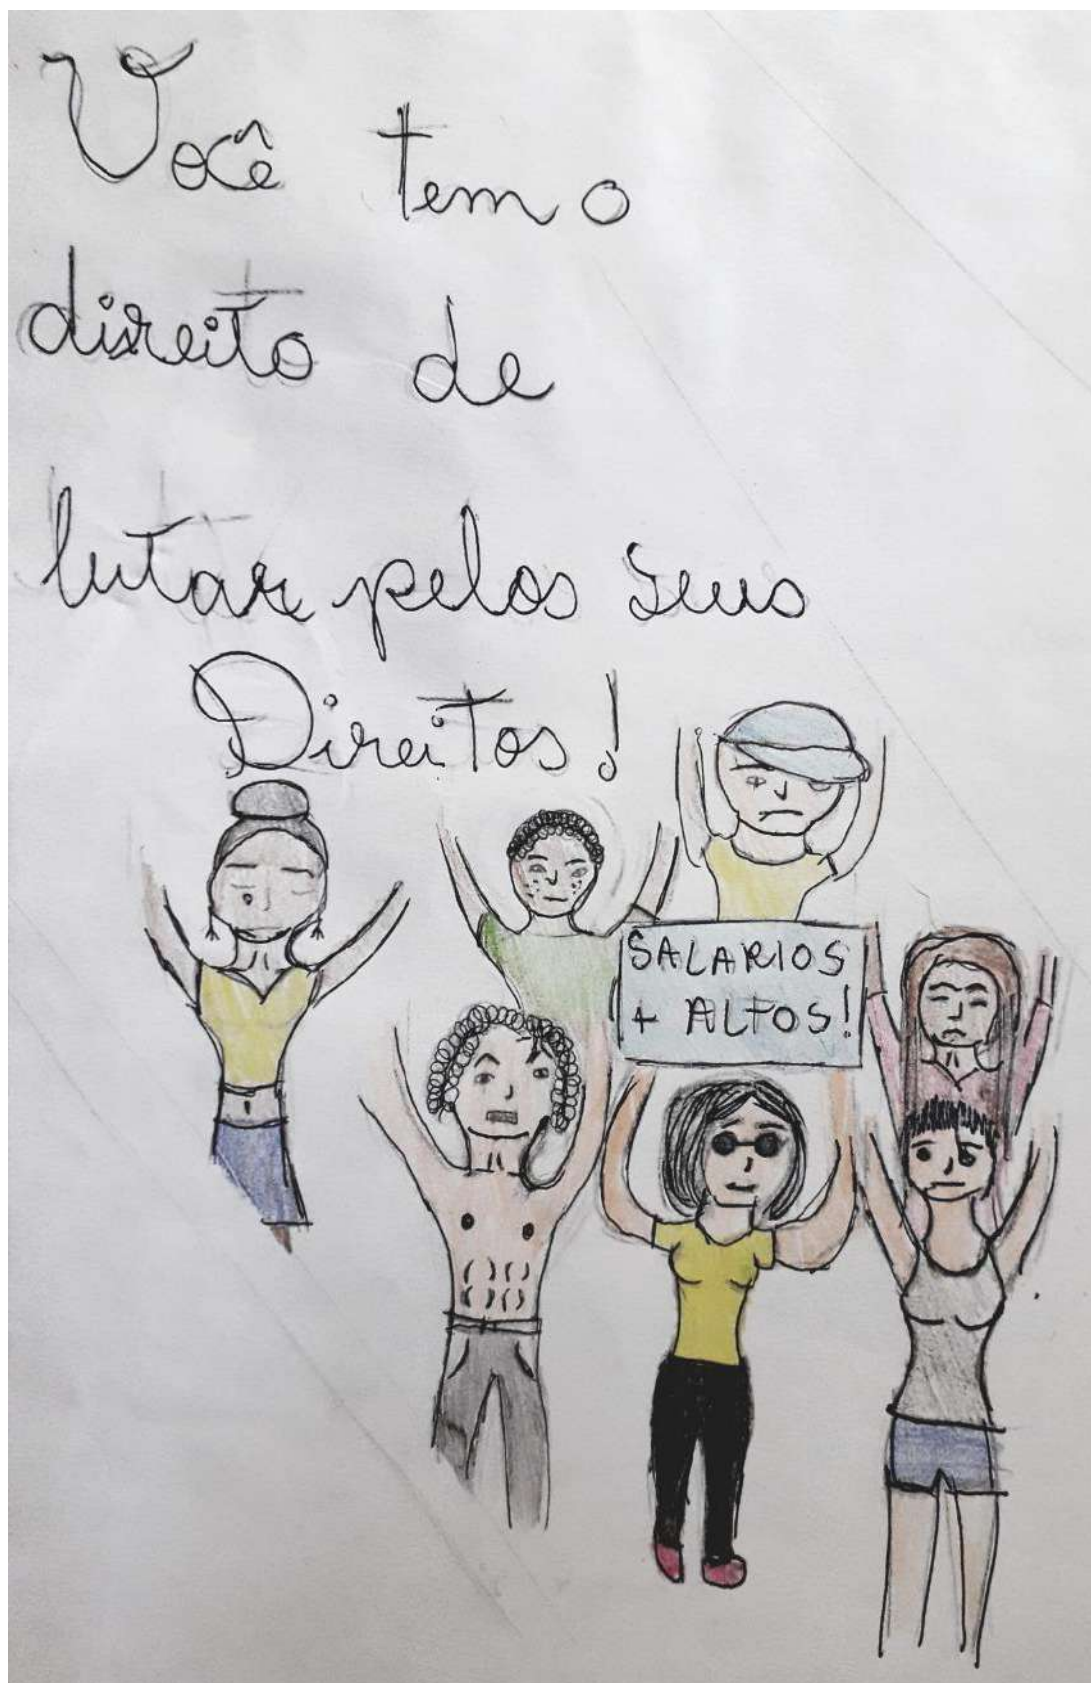 Você tem o
direito de
lutar pelos seus
Direitos!
SALARIOS
+ ALTOS!